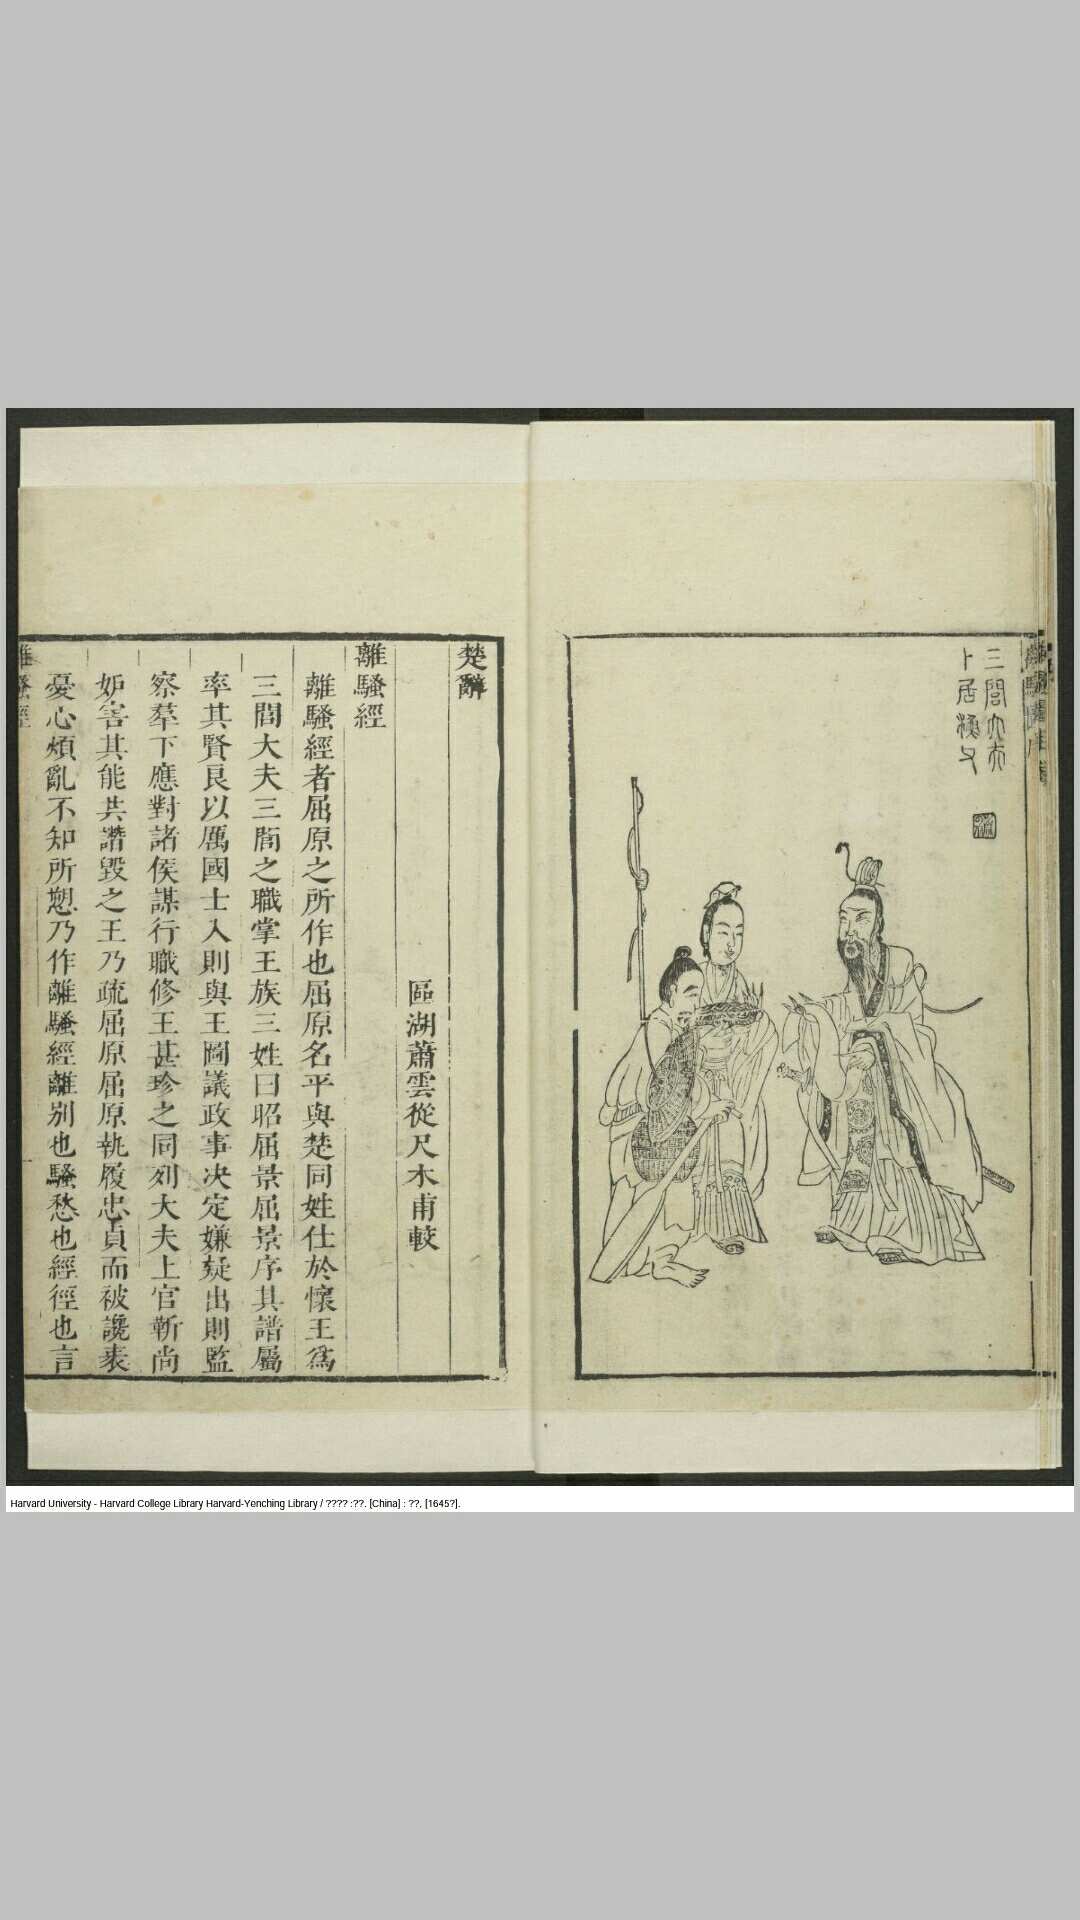 三閭大夫
卜居漁父
楚辭
區湖蕭雲從尺木甫較
離騷經
離騷經者屈原之所作也屈原名平與楚同姓仕於懷王爲
三閭大夫三閭之職掌王族三姓曰昭屈景屈景序其譜屬
率其賢良以厲國士入則與王圖議政事决定嫌疑出則監
察羣下應對諸侯謀行職修王甚珍之同列大夫上官靳尚
妒害其能共譖毀之王乃疏屈原屈原執履忠貞而被讒衺
憂心煩亂不知所愬乃作離騷經離别也騷愁也經徑也言
離騷經
Harvard University - Harvard College Library Harvard-Yenching Library / ???? :??. [China] : ??, [1645?].